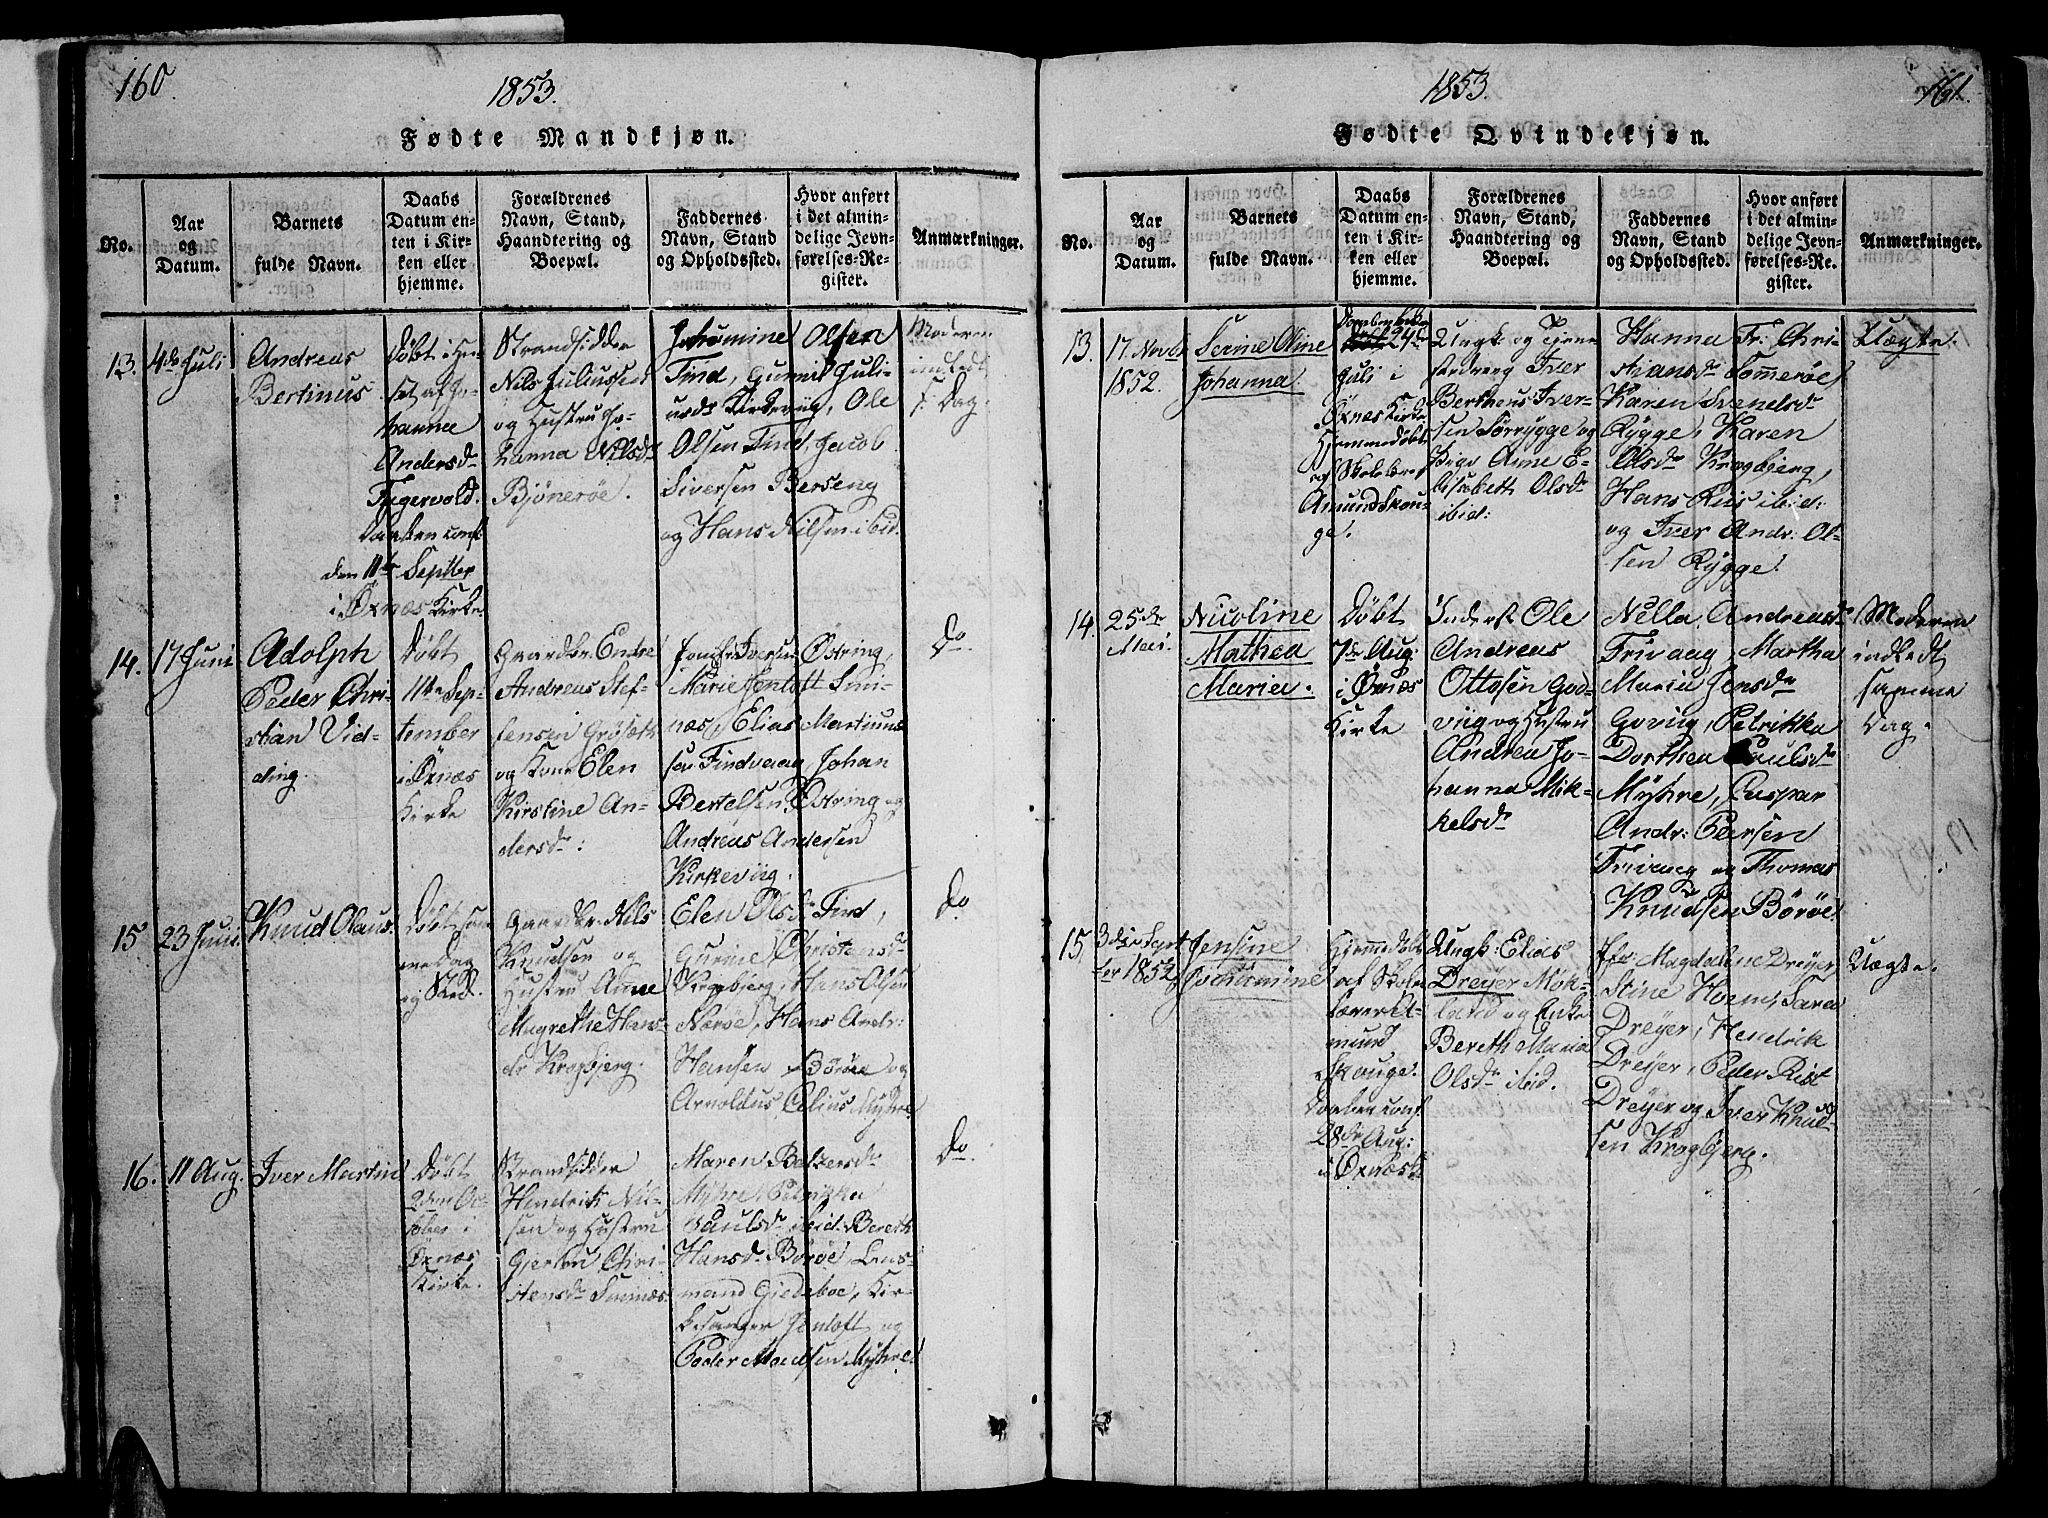 160
1853.
Fødte Mandkjøn.
No.
Aar
og
Datum.
Barnets
fulde Navn.
Daabs
Datum en-
ten i Kir-
ken eller
hjemme.
Forældrenes
Navn, Stand,
Haandtering og
Boepæl.
Faddernes
Navn, Stand
og Opholdssted.
Hvor anført
i det almin-
delige Jevn-
førelses-Re-
gister.
Anmærkninger.
13. 4de Juli
Andreas
Bertinus
Døbt i Hu-
set af Jo-
hanna
Andersd.
Daaben conf.
den 11te Septber
i Øxnæs Kirke
Strandsidder
Nils Juliussen
og Hustru Jo-
hanna Nilsd.
Bjønerøe.
Johamine Olsen
Tind, Juli-
Kirkeviig, Ole
Olsen Tind, Jacob
Siversen Berseng
og Hans Nilsen ibid.
Moderen
indledt
s. Dag.
14. 17 Juni
Adolph
Peder Chri-
stian Vid-
ding.
Døbt
11te Sep-
tember
i Øxnæs
Kirke
Gaardbr. Endre
Andreas Stef-
fensen
og Kone Elen
Kirstine An-
dersd:
Jomfr. Iversen Østring,
Marie Jentoft Smi-
næs, Elias Martinus
sen Tindvaag, Johan
Bertelsen Østring og
Andreas Andersen
Kirkeviig.
Do
15 23 Juni
Knud Olaus
Døbt sam-
me Dag
og Sted.
Gaardbr. Nils
Knudsen og
Hustru Anne
Magrethe Hans-
dr Krogbjerg.
Elen Olsd. Tind,
Gurine Christensd.
Krogbjerg, Hans Olsen
Nærøe, Hans Andr:
Hansen Børøe og
Arnoldus Celius Myhre
Do
16. 11 Aug.
Iver Martin
Døbt
2den Oc-
tober i
Øxnæs
Kirke.
Strandsidder
Hendrik Nil-
sen og Hustru
Chri-
stensd.
Maren Baltzersd.
Myhre, Petrikka
Paulsd. ibid. Bereth
Hansd. Børøe, Lens-
mand Gjedeboe, Kir-
kesanger Jentoft og
Peder Madsen Myhre
Do.
1853.
161.
Fødte Qvindekjøn.
No.
Aar
og
Datum.
Barnets
fulde Navn.
Daabs
Datum en-
ten i Kir-
ken eller
hjemme.
Forældrenes
Navn, Stand,
Haandtering og
Boepæl.
Faddernes
Navn, Stand
og Opholdssted.
Hvor anført
i det almin-
delige Jevn-
førelses-Re-
gister.
Anmærkninger.
13. 17 Novbr
1852.
Serine Oline
Johanna.
24de
Juli i
Øxnæs Kirke
Hjemmedøbt
af Skolelærer
Amund Skou-
ge.
Ungk. og Tjene-
stedreng Iver
Bertheus Iver-
sen Sørrygge og
Pige Anne E-
lisabeth Olsd.
ibid:
Hanna Fr: Chri-
stiansd. Sommerøe
Karen Svendsd.
Rygge, Karen
Olsd. Krogbjerg,
Hans Riis ibid:
og Iver Andr: Ol-
sen Rygge.
Uægte.
14. 25de
Mai.
Nicoline
Mathea
Maria.
Døbt
7de Aug:
i Øxnæs
Kirke
Inderst Ole
Andreas
Ottosen God-
viig og Hustru
Andrea Jo-
hanna Mik-
kelsd.
Nella Andreasd.
Trivaag, Martha
Maria Jensd.
Petrikka
Dorthea Paulsd.
Myhre, Caspar
Andr: Persen
Trivaag og Thomas
Knudsen Børøe
Moderen
indledt
samme
Dag.
15.
1852
Jensine
Johamine
Hjemmedøbt
af Skole-
lærer A-
mund
Skouge.
Daaben conf.
28de Aug:
i Øxnæs K.
Ungk: Elias
Dreyer Møk-
land og Enke
Bereth Maria
Olsd. ibid.
Magdalene Dreyer
Stine Holm, Sara
Dreyer, Hendrik
Dreyer, Peder Rist
Dreyer og Iver Knud-
sen Krogbjerg.
Uægte.